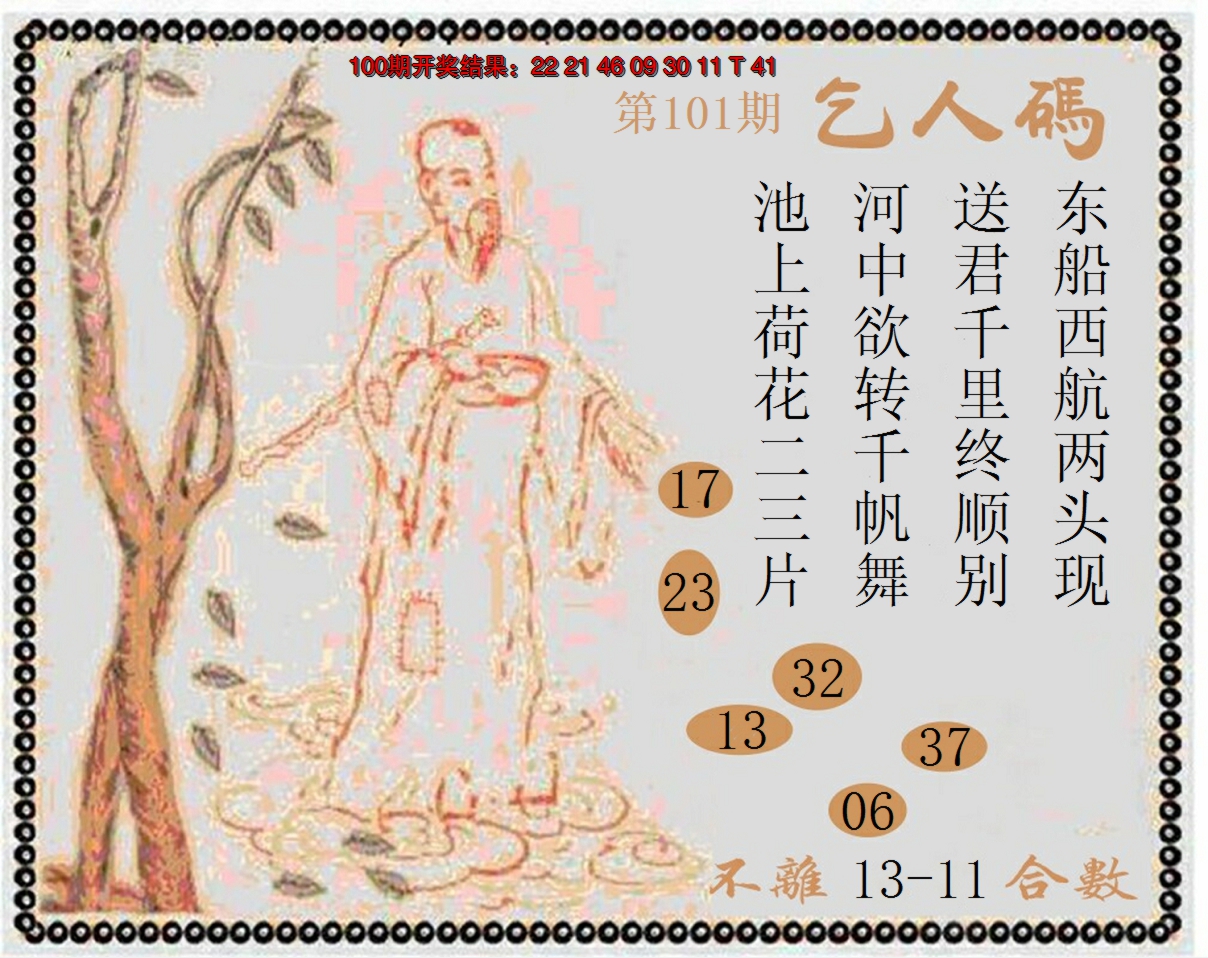 100期开奖结果：22 21 46 09 30 11 T 41
第101期 乞人碼
东船西航两头现
送君千里终顺别
河中欲转千帆舞
池上荷花二三片
17
23
32
13
37
06
不離 13-11 合數